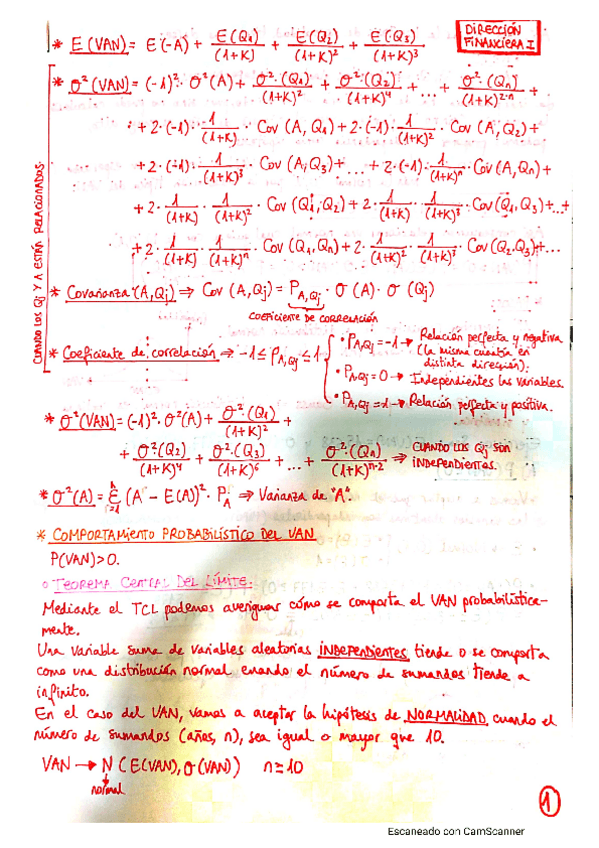 DIRECCIÓN
FINANCIERA I
* E(VAN) = E(-A) + E(Q1)/(1+K) + E(Q2)/(1+K)² + E(Q3)/(1+K)³
* σ²(VAN) = (-1)²· σ²(A) + σ²·(Q1)/(1+K)² + σ²·(Q2)/(1+K)⁴ + ... + σ²·(Qn)/(1+K)²·ⁿ +
+ 2·(-1)· 1/(1+K) · Cov (A, Q1) + 2·(-1)· 1/(1+K)² · Cov (A, Q2) +
+ 2·(-1)· 1/(1+K)³ · Cov (A, Q3) + ... + 2·(-1)· 1/(1+K)ⁿ · Cov (A, Qn) +
+ 2· 1/(1+K) · 1/(1+K)² · Cov (Q1, Q2) + 2· 1/(1+K) · 1/(1+K)³ · Cov (Q1, Q3) + ... +
+ 2· 1/(1+K) · 1/(1+K)ⁿ · Cov (Q1, Qn) + 2· 1/(1+K)² · 1/(1+K)³ · Cov (Q2·Q3) + ...
CUANDO LOS Qj Y A ESTÁN RELACIONADOS.
* Covarianza (A,Qj) ⇒ Cov (A, Qj) = P A,Qj · σ (A) · σ (Qj)
COEFICIENTE DE CORRELACIÓN
* Coeficiente de correlación ⇒ -1 ≤ P A,Qj ≤ 1
· P A,Qj = -1 → Relación perfecta y negativa
(la misma cuantía en
distinta dirección).
· P A,Qj = 0 → Independientes las variables.
· P A,Qj = 1 → Relación perfecta y positiva.
* σ²(VAN) = (-1)²· σ²(A) + σ²·(Q1)/(1+K)² +
+ σ²(Q2)/(1+K)⁴ + σ²·(Q3)/(1+K)⁶ + ... + σ²·(Qn)/(1+K)ⁿ·² ⇒ CUANDO LOS Qj SON
INDEPENDIENTES
* σ²(A) = Σ (A - E(A))² · Pi ⇒ Varianza de "A".
* COMPORTAMIENTO PROBABILÍSTICO DEL VAN
P(VAN) > 0.
o TEOREMA CENTRAL DEL LÍMITE.
Mediante el TCL podemos averiguar cómo se comporta el VAN probabilística-
mente.
Una variable suma de variables aleatorias INDEPENDIENTES, tiende o se comporta
como una distribución normal cuando el número de sumandos tiende a
infinito.
En el caso del VAN, vamos a aceptar la hipótesis de NORMALIDAD, cuando el
número de sumandos (años, n), sea igual o mayor que 10.
VAN → N (E(VAN), σ(VAN)) n ≥ 10
normal
1
Escaneado con CamScanner